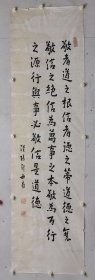 敬者道之根信者德之蒂道德之
敬信之信為萬事之本敬為百行
之源行與事必敬信是道德